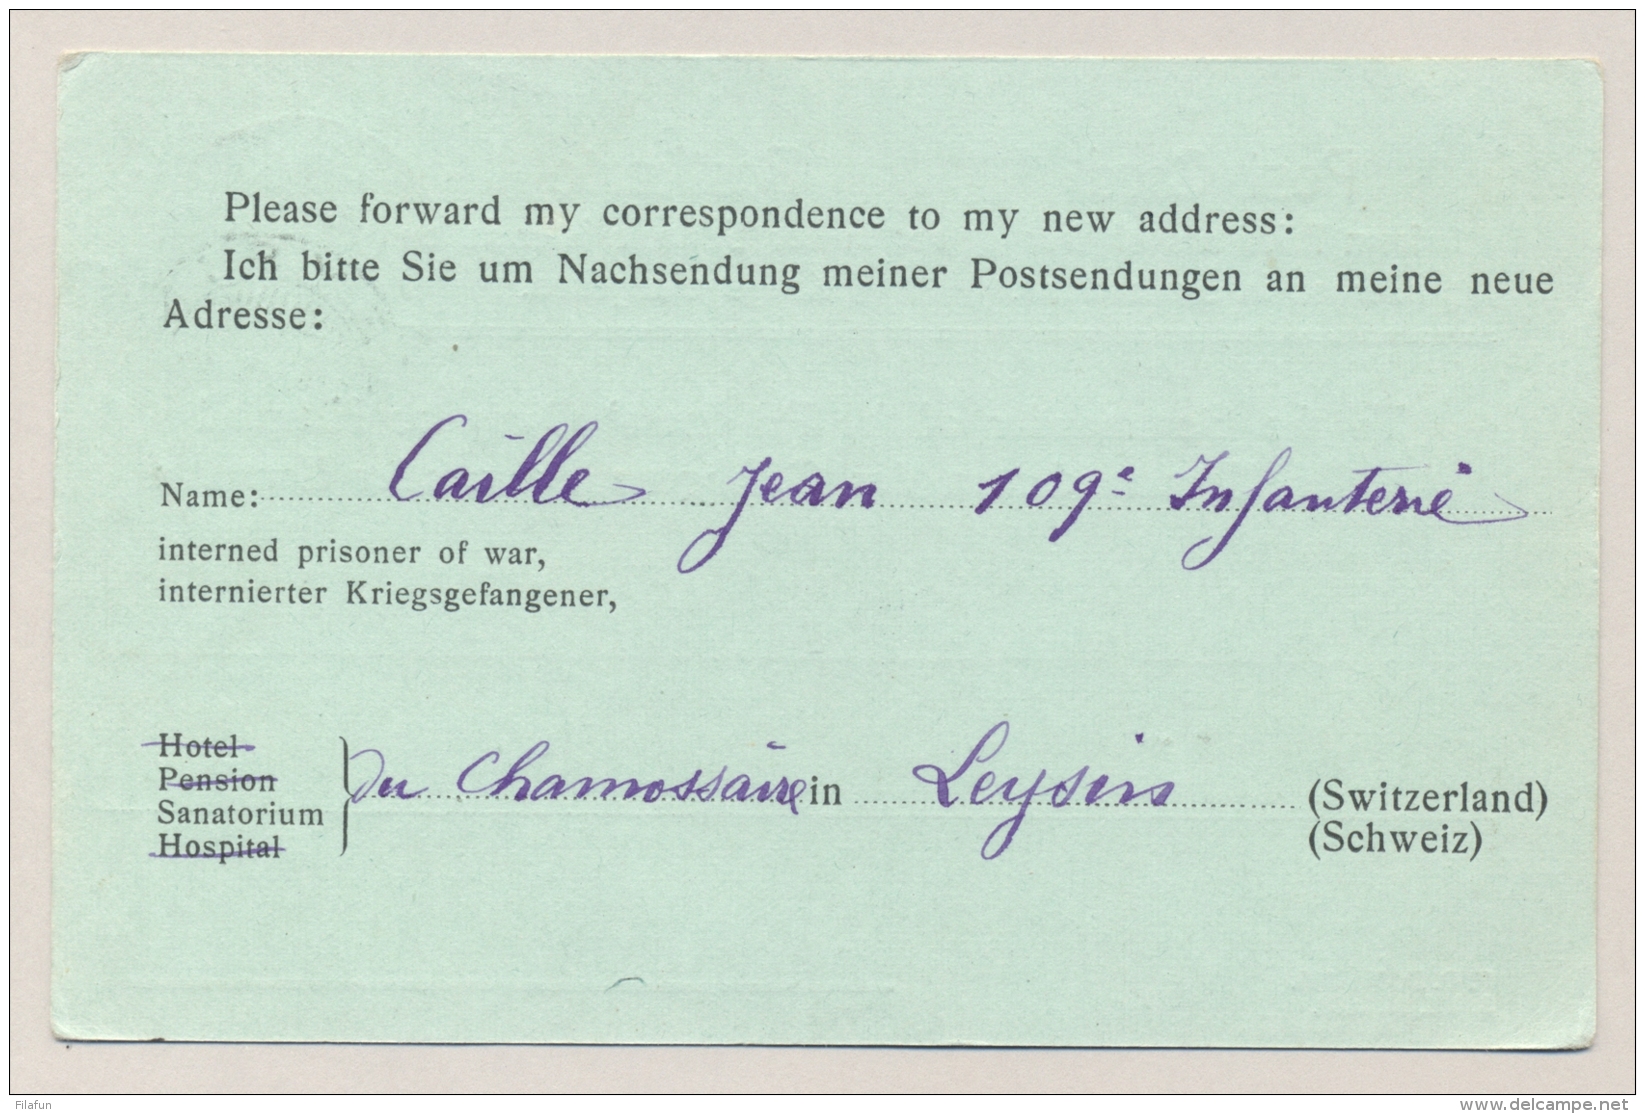 Please forward my correspondence to my new address:
Ich bitte Sie um Nachsendung meiner Postsendungen an meine neue
Adresse:
Name: Caille Jean 109e Infanterie
interned prisoner of war,
internierter Kriegsgefangener,
Hotel
Pension
Sanatorium
Hospital
du Chamossaire in Leysin (Switzerland)
(Schweiz)
Filafun
www.delcampe.net